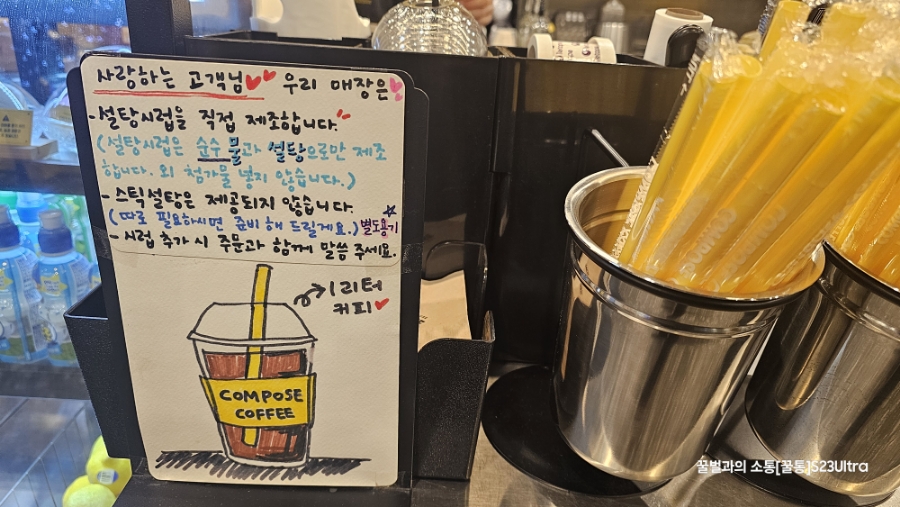 사랑하는 고객님 우리 매장은
-설탕시럽을 직접 제조합니다.
(설탕시럽은 순수 물과 설탕으로만 제조
합니다. 외 첨가물 넣지 않습니다.)
-스틱설탕은 제공되지 않습니다.
(따로 필요하시면 준비 해 드릴게요.) 별도용기
-시럽 추가 시 주문과 함께 말씀 주세요.
1리터
커피
COMPOSE
COFFEE
꿀벌과의 소통[꿀통]S23Ultra